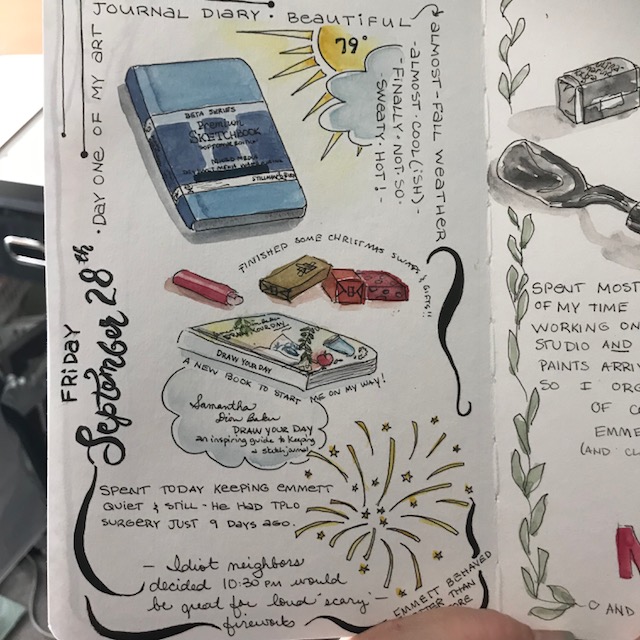 FRIDAY
September 28th
• DAY ONE OF MY ART
JOURNAL DIARY • BEAUTIFUL
ALMOST-FALL WEATHER
-ALMOST-COOL(ISH)-
-FINALLY-NOT-SO-
-SWEATY-HOT!-
79°
BETA SERIES
Premium
SKETCHBOOK
STILLMAN & BIRN
FINISHED SOME CHRISTMAS SWAPS & GIFTS!!
DRAW YOUR DAY
DRAW YOUR DAY
A NEW BOOK TO START ME ON MY WAY!
Samantha
Dion Baker
DRAW YOUR DAY
an inspiring guide to keeping
a sketch journal
SPENT TODAY KEEPING EMMETT
QUIET & STILL - HE HAD TPLO
SURGERY JUST 9 DAYS AGO.
- Idiot neighbors
decided 10:30 PM would
be great for "loud" "scary"
fireworks
EMMETT BEHAVED
THAN
SPENT MOST
OF MY TIME
WORKING ON
STUDIO AND
PAINTS ARRI
SO I ORG
OF
EMME
(AND CL
AND